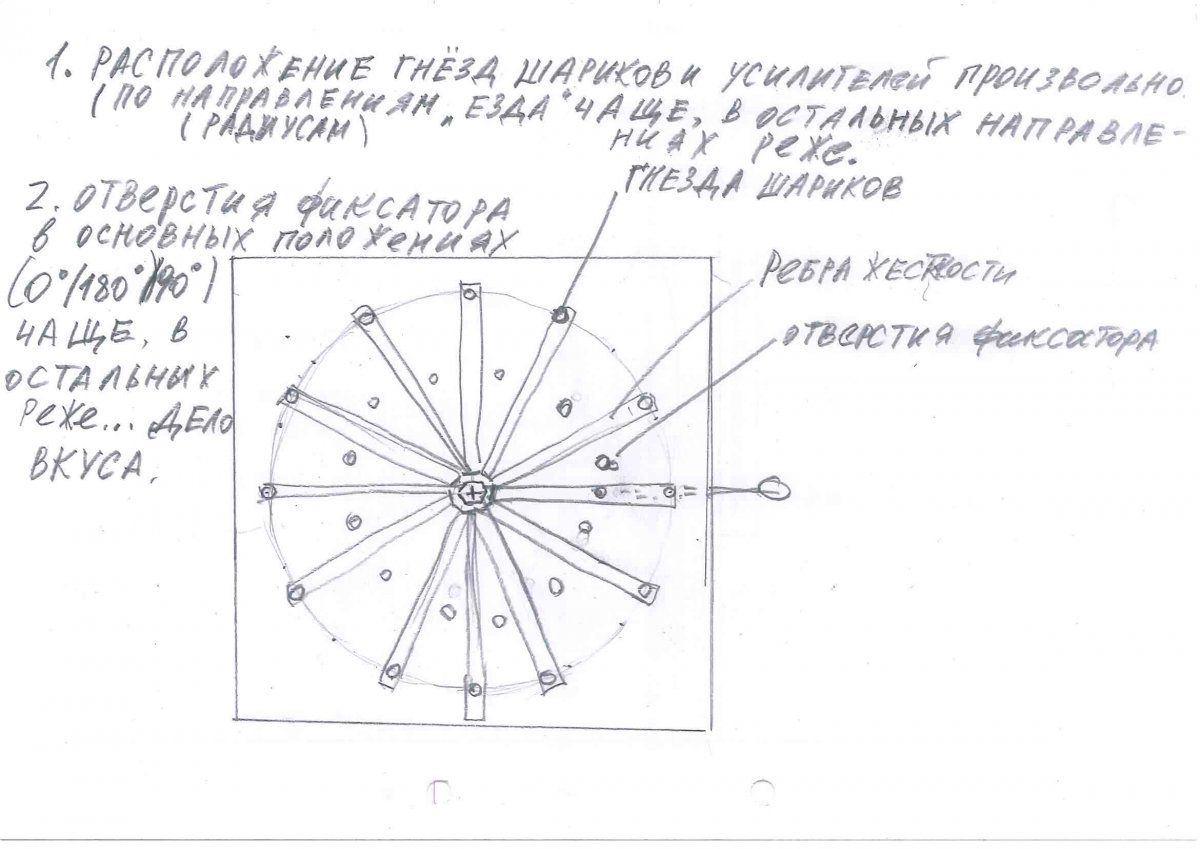 1. РАСПОЛОЖЕНИЕ ГНЁЗД ШАРИКОВ И УСИЛИТЕЛЕЙ ПРОИЗВОЛЬНО.
(ПО НАПРАВЛЕНИЯМ „ЕЗДА" ЧАЩЕ, В ОСТАЛЬНЫХ НАПРАВЛЕ-
(РАДИУСАМ)
НИАХ РЕЖЕ.
ГНЕЗДА ШАРИКОВ
2. ОТВЕРСТИЯ ФИКСАТОРА
В ОСНОВНЫХ ПОЛОЖЕНИЯХ
(0°/180°)(90°)
ЧАЩЕ, В
ОСТАЛЬНЫХ
РЕЖЕ... ДЕЛО
ВКУСА.
РЕБРА ЖЕСТКОСТИ
ОТВЕРСТИЯ ФИКСАТОРА